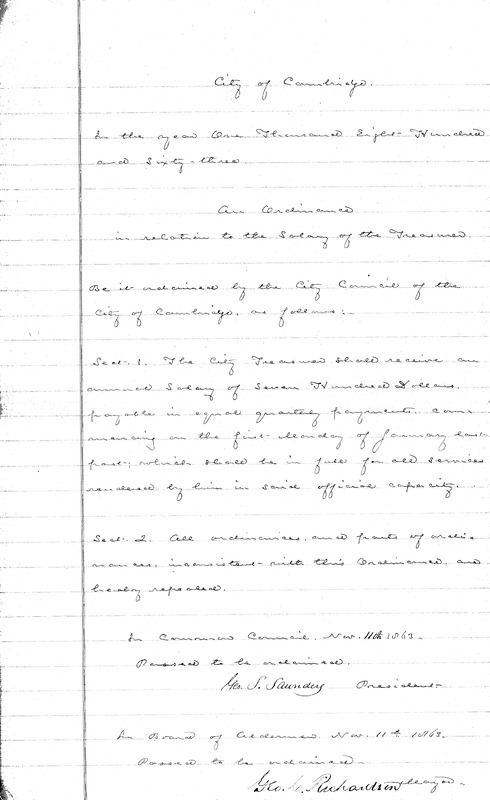 City of Cambridge.
In the year One Thousand Eight Hundred
and Sixty-three
An Ordinance
in relation to the Salary of the Treasurer.
Be it ordained by the City Council of the
City of Cambridge, as follows:-
Sect. 1. The City Treasurer shall receive an
annual Salary of Seven Hundred Dollars,
payable in equal quarterly payments, com-
mencing on the first Monday of January last
past; which shall be in full for all services
rendered by him in said official capacity.
Sect. 2. All ordinances, and parts of ordi-
nances, inconsistent with this Ordinance, are
hereby repealed.
In Common Council. Nov. 11th 1863.
Passed to be ordained.
Geo. S. Saunders President
In Board of Aldermen. Nov. 11th 1863.
Passed to be ordained.
Geo. C. Richardson Mayor.